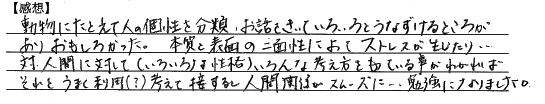 【感想】
動物にたとえて人の個性を分類、お話をきいていろいろとうなずけるところが
ありおもしろかった。本質と表面の二面性によってストレスが生じたり‥
対人間に対して(いろいろな性格)いろんな考え方をもている事がわかれば
それをうまく利用(?)考えて接すると人間関係がスムーズに…勉強になりました。